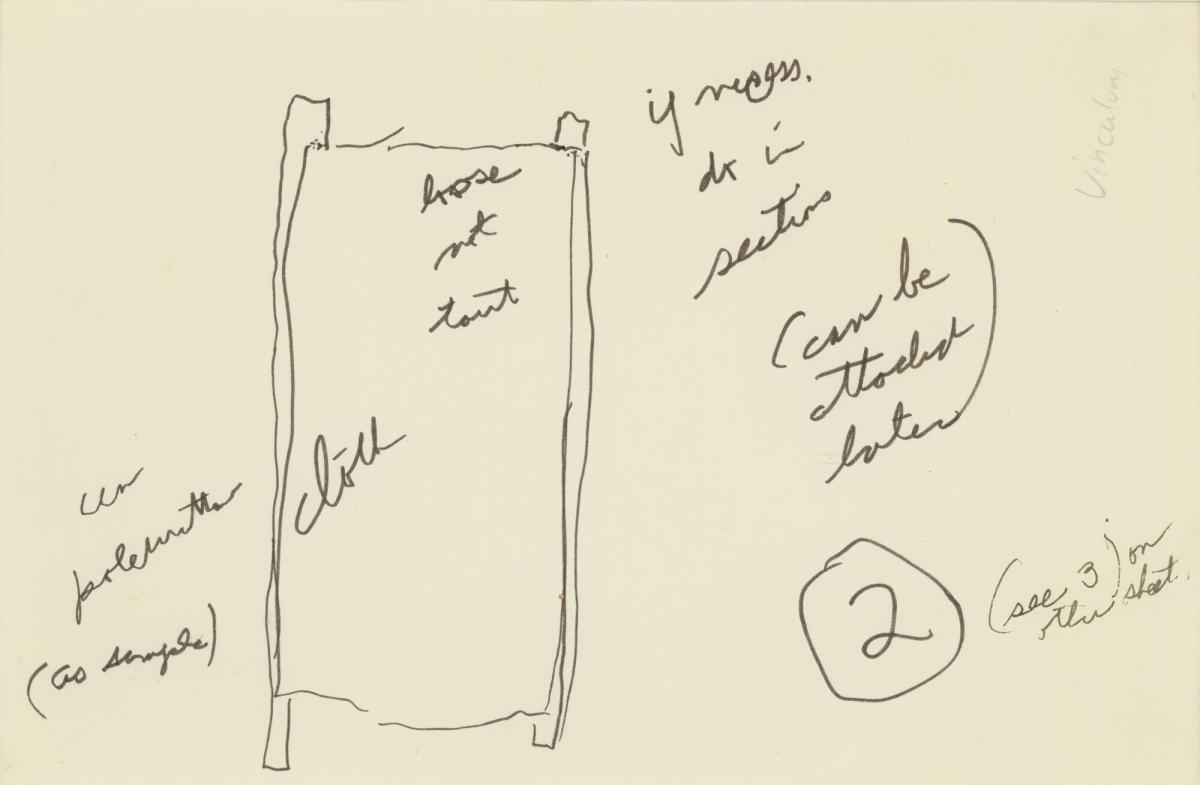 loose
not
taut
cloth
if necess.
do in
sections
(can be
attached
later)
(as sample)
2
(see 3) on
other sheet.
Vinculum